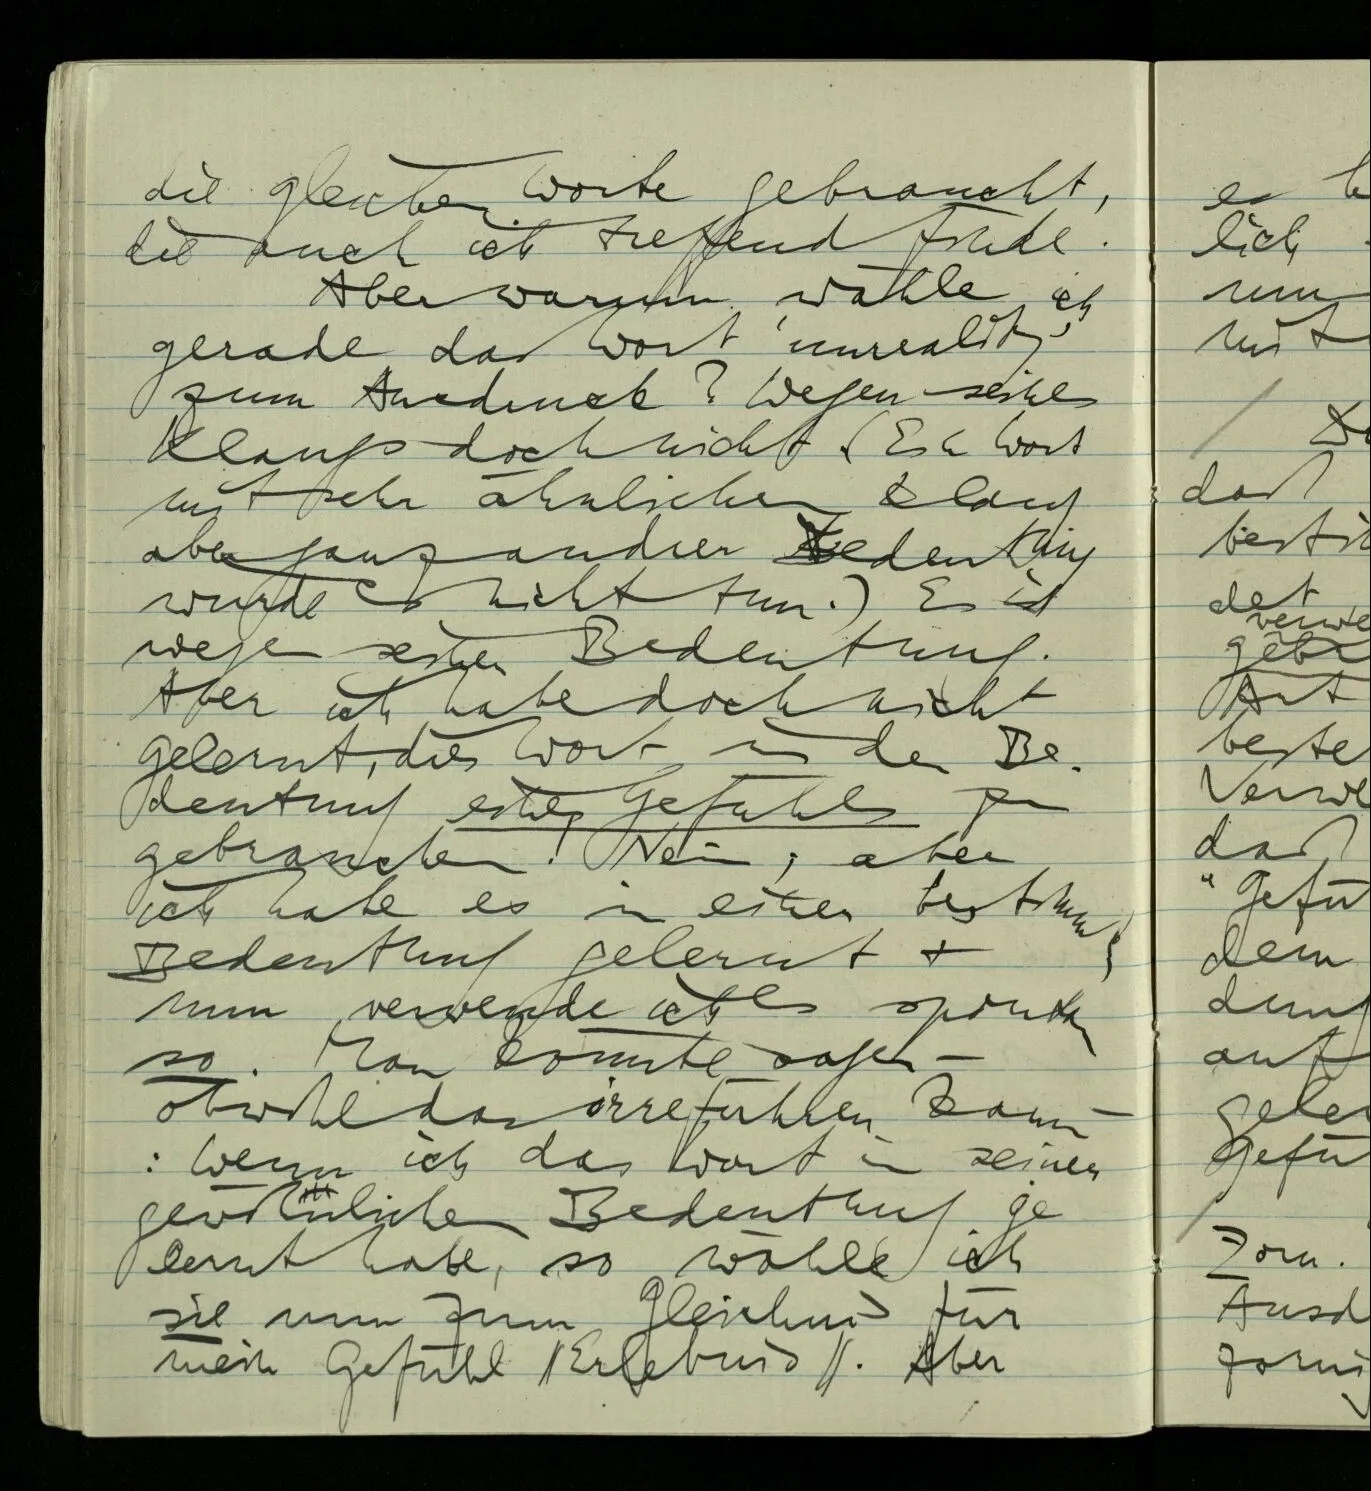 die gleichen Worte gebraucht,
die auch ich treffend finde.
Aber warum wähle ich
gerade das Wort ‘unreality’
zum Ausdruck? Wegen seines
Klangs doch nicht. (Ein Wort
mit sehr ähnlichem Klang
aber ganz andrer Bedeutung
würde es nicht tun.) Es ist
wegen seiner Bedeutung.
Aber ich habe doch nicht
gelernt, dies Wort in der Be-
deutung eines Gefühls zu
gebrauchen! Nein; aber
ich habe es in einer bestimmt
Bedeutung gelernt +
nun verwende ich es spontan
so. Man könnte sagen –
obwohl das irreführen kann –
: Wenn ich das Wort in seiner
gewöhnlichen Bedeutung ge
lernt habe, so wähle ich
sie nun zum Gleichnis für
mein Gefühl //Erlebnis//. Aber
es
lich
nun
mit
daß
bestim
det
verwe
gebr
Art
beste
Verwe
daß
“Gefü
dem
dung
auf
geler
Gefü
Zorn.
Ausd
zorni